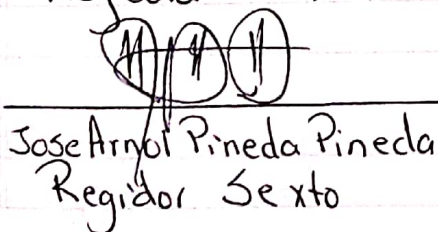 Jose Arnol Pineda Pineda
Regidor Sexto